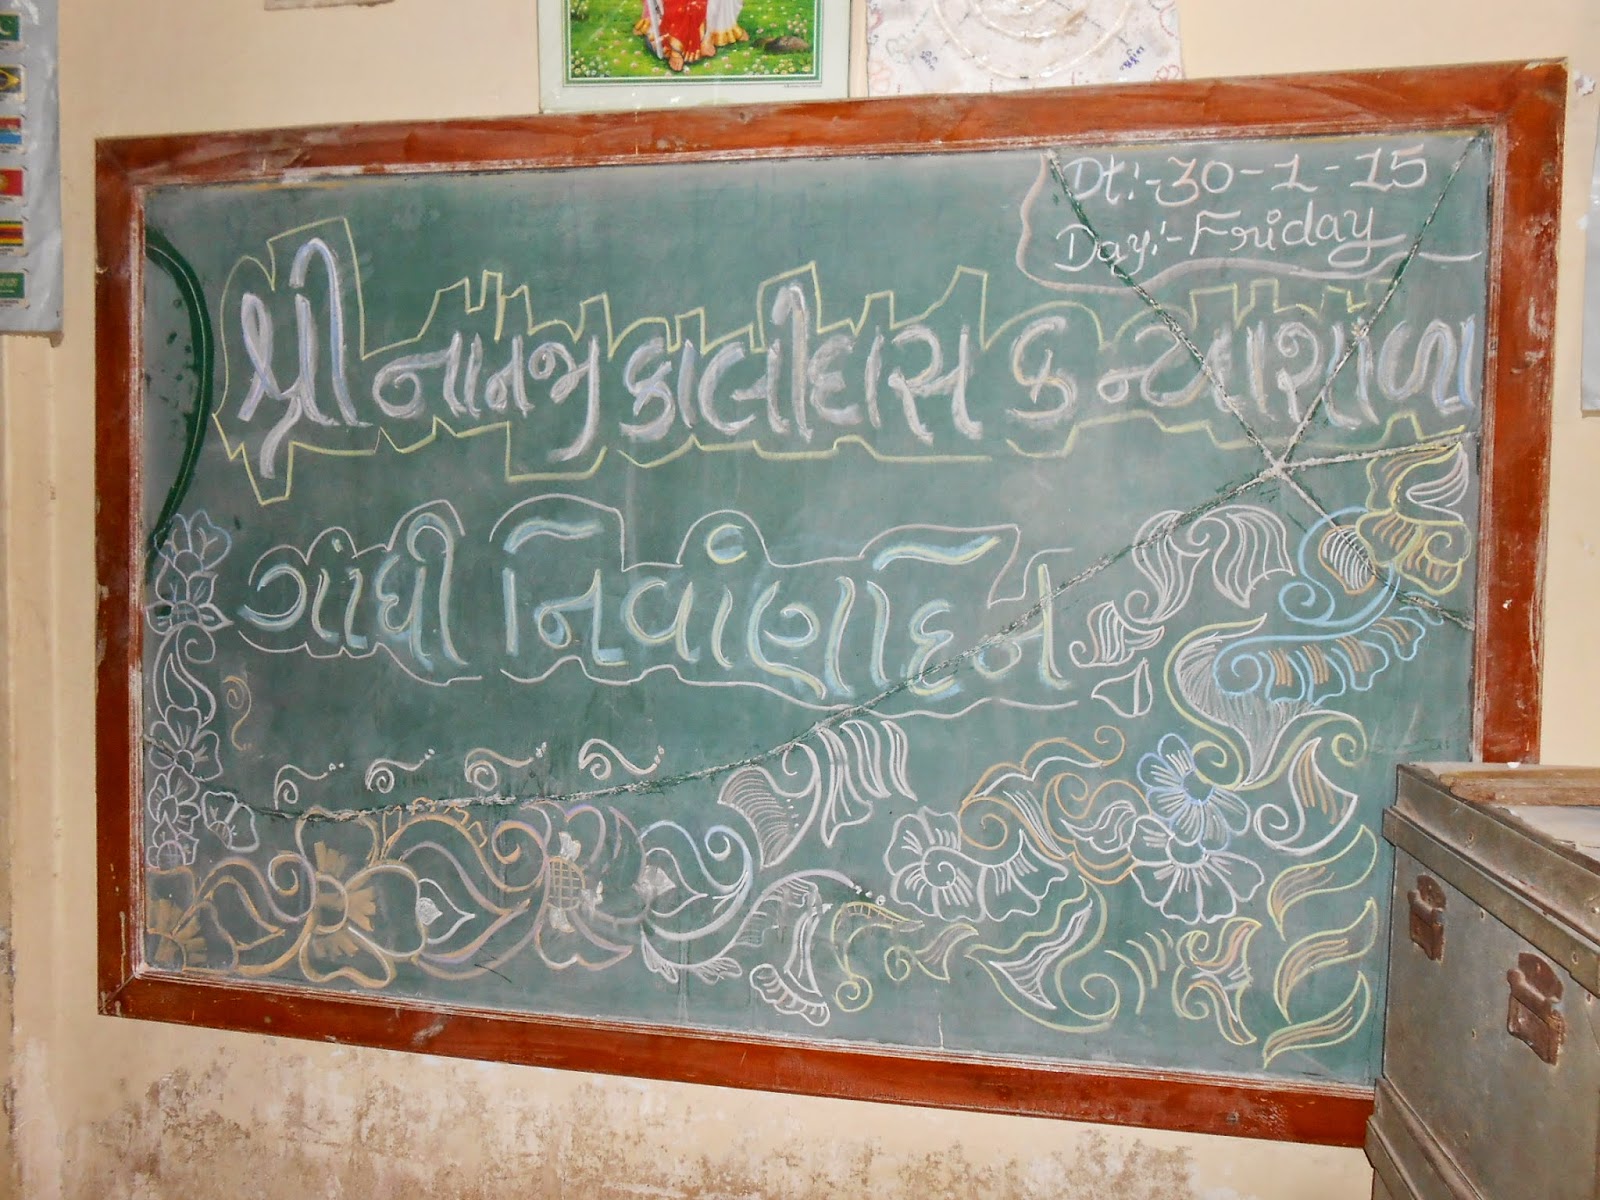 Dt:-30-1-15
Day:-Friday
શ્રી નાનજી કાલીદાસ કન્યાશાળા
ગાંધી નિર્વાણદિન